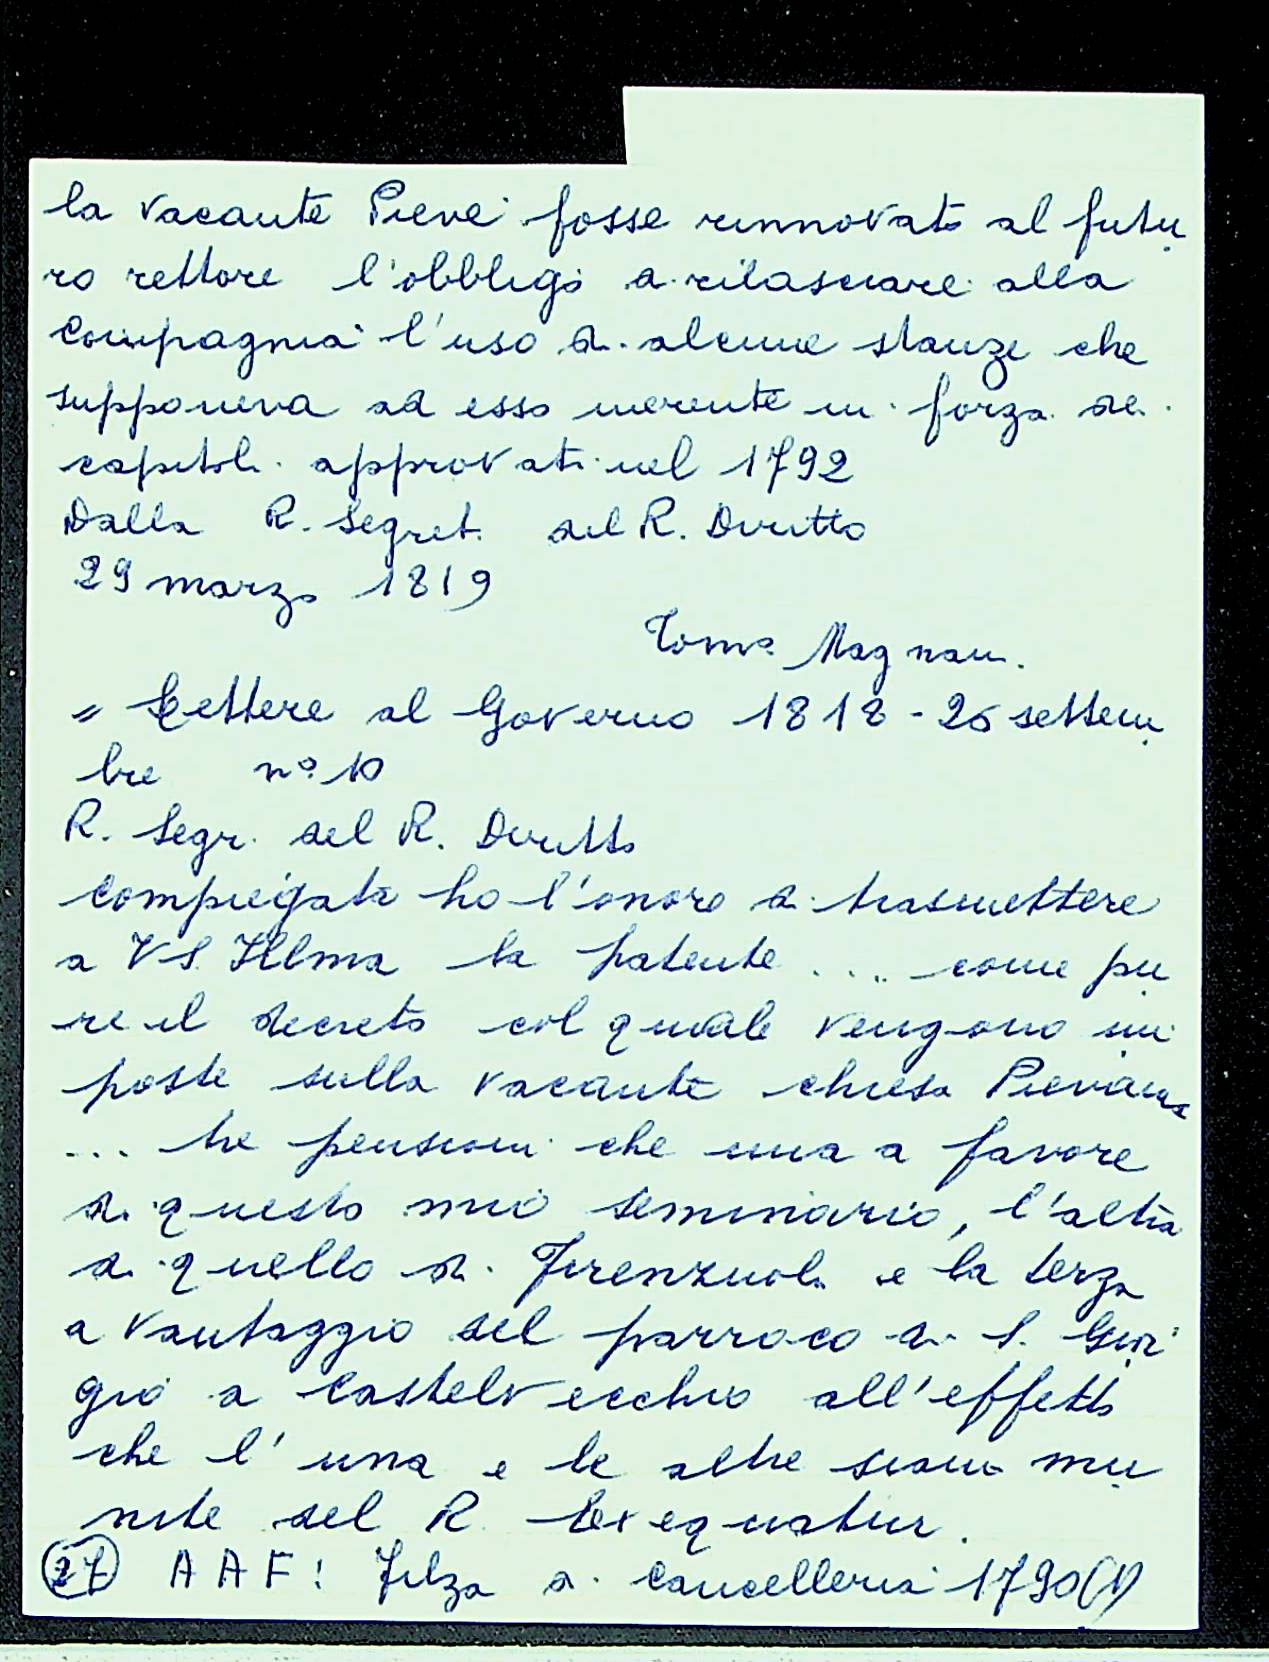 la vacante Pieve fosse rinnovato al futu
ro rettore l'obbligo di rilasciare alla
Compagnia l'uso di alcune stanze che
supponeva ad esso inerente in forza dei
capitoli approvati nel 1792
Dalla R. Segret. del R. Diritto
29 marzo 1819
Tom.o Magnani.
" Lettere al Governo 1818 - 26 settem
bre n.o 10
R. Segr. del R. Diritto
Compiegata ho l'onore di trasmettere
a VS. Illma la patente .... come pu
re il decreto col quale vengono im
poste sulla vacante chiesa Pievana
... tre pensioni che una a favore
di questo mio seminario, l'altra
di quello di Firenzuola e la terza
a vantaggio del parroco di S. Gior
gio a Castelvecchio all'effetto
che l'una e le altre siano mu
nite del R. Exequatur.
27 A A F: Filza di Cancelleria 1790 (1)